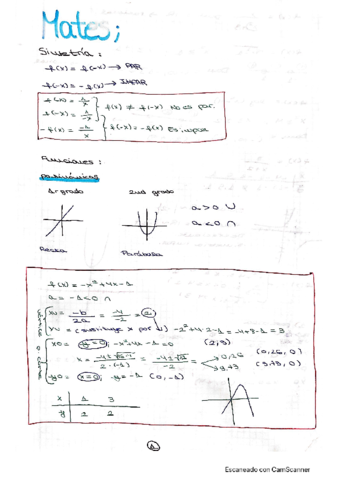 Mates;
Simetría:
f(x) = f(-x) → PAR
f(-x) = -f(x) → IMPAR
f(x) = 1/x
f(-x) = 1/-x
f(x) ≠ f(-x) No es par.
-f(x) = -1/x
f(-x) = -f(x) Es impar
Funciones:
polinómicas
1er grado
2do grado
a > 0 ∪
a < 0 ∩
Recta
Parábola
f(x) = -x²+4x-1
a = -1 < 0 ∩
xv = -b/2a = -4/-2 = 2
yv = (sustituye x por 2) -2²+4·2-1 = -4+8-1 = 3
(2,3)
x0 = y=0; -x²+4x-1=0
0,26 (0,26, 0)
(3,73, 0)
y0 = x=0; y=-1 (0,-1)
x 1 3
y 2 2
1
Escaneado con CamScanner